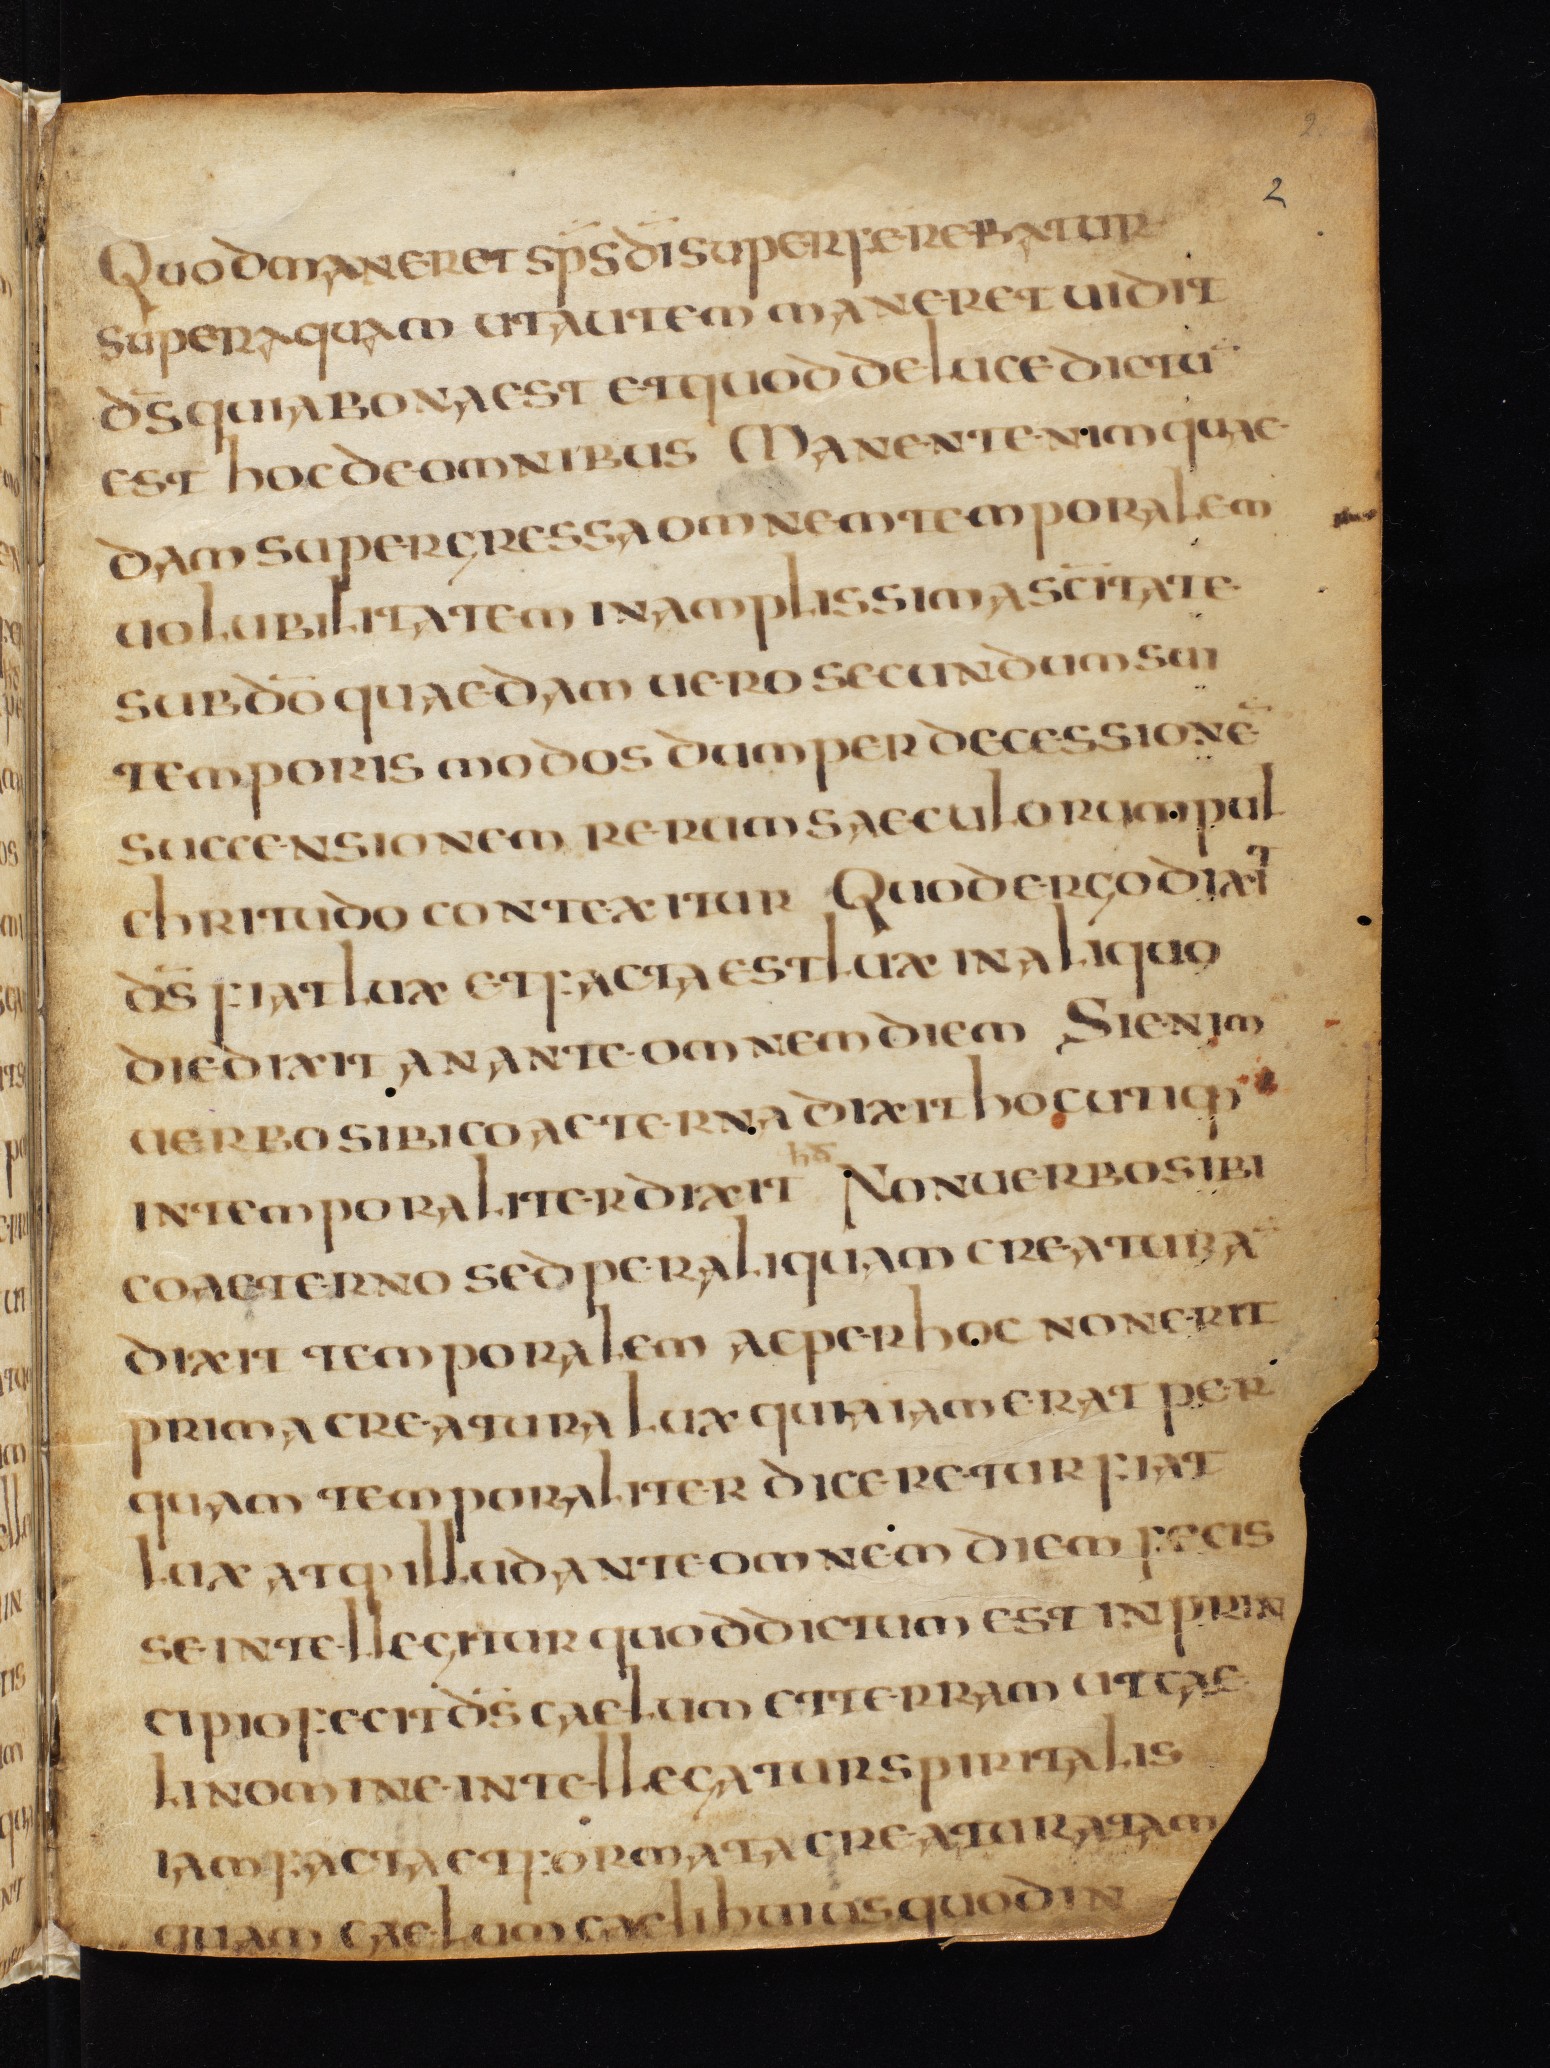 2
2
Quod maneret sp̄s dī superferebatur
super aquam ut autem maneret uidit
d̄s quia bona est et quod de luce dictū
est hoc de omnibus Manent enim quae
dam supergressa omnem temporalem
uolubilitatem in amplissima sc̄itate
sub dō quaedam uero secundum sui
temporis modos dum per decessionē
succensionem rerum saeculorum pul
chritudo contexitur Quod ergo dixit
d̄s fiat lux et facta est lux in aliquo
die dixit an ante omnem diem Si enim
uerbo sibi coaeterna dixit hoc utiq
hd
intemporaliter dixit Non uerbo sibi
coaeterno sed per aliquam creaturā
dixit temporalem ac per hoc non erit
prima creatura lux quia iam erat per
quam temporaliter diceretur fiat
lux atq illud ante omnem diem fecis
se intellegitur quod dictum est in prin
cipio fecit d̄s caelum et terram ut cae
li nomine intellegatur spiritalis
iam facta et formata creatura tam
quam caelum caeli huius quod in